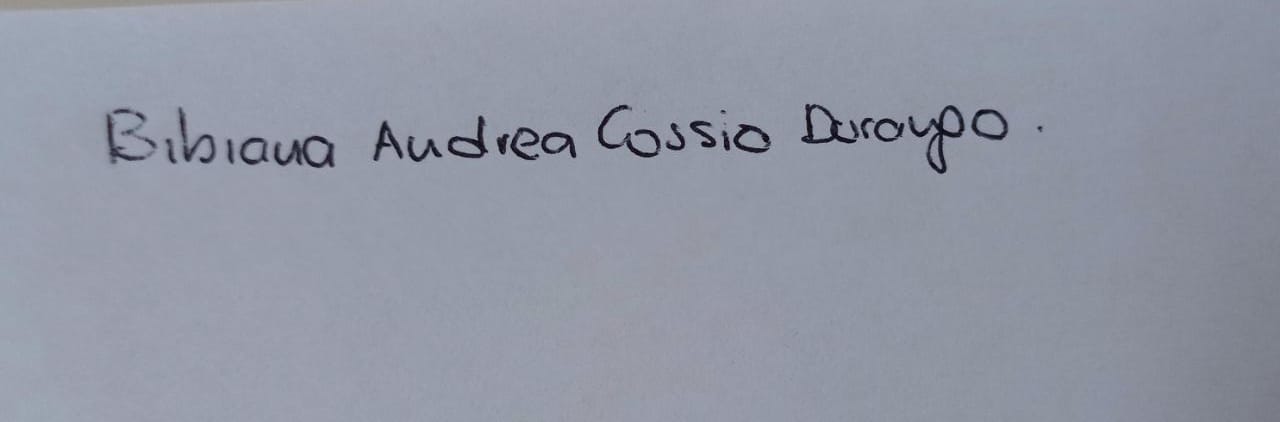 Bibiana Andrea Cossio Durango.